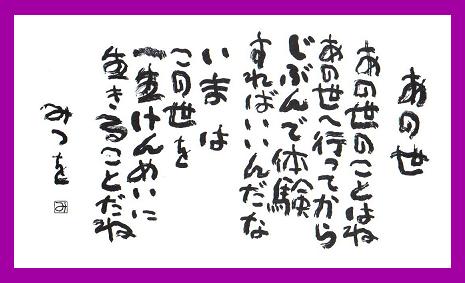 あの世
あの世のことはね
あの世へ行ってから
じぶんで体験
すればいいんだな
いまは
この世を
一生けんめいに
生きることだね
みつを
み